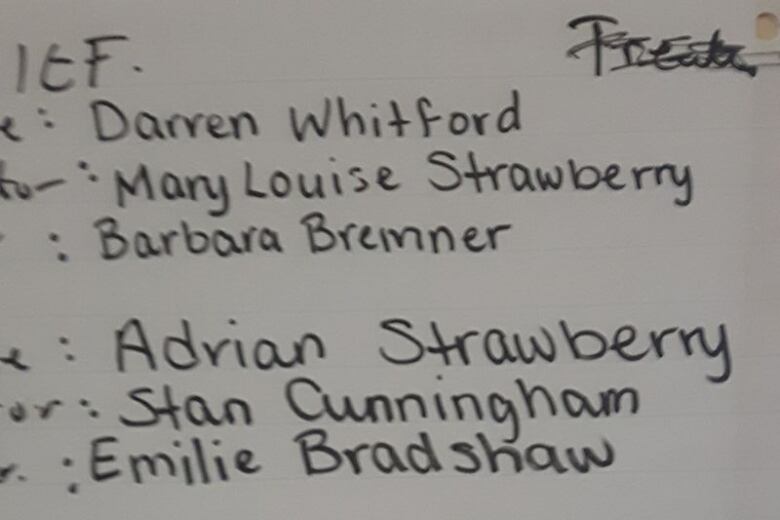 ItF.
e: Darren Whitford
tor: Mary Louise Strawberry
: Barbara Bremner
e: Adrian Strawberry
or: Stan Cunningham
r. : Emilie Bradshaw